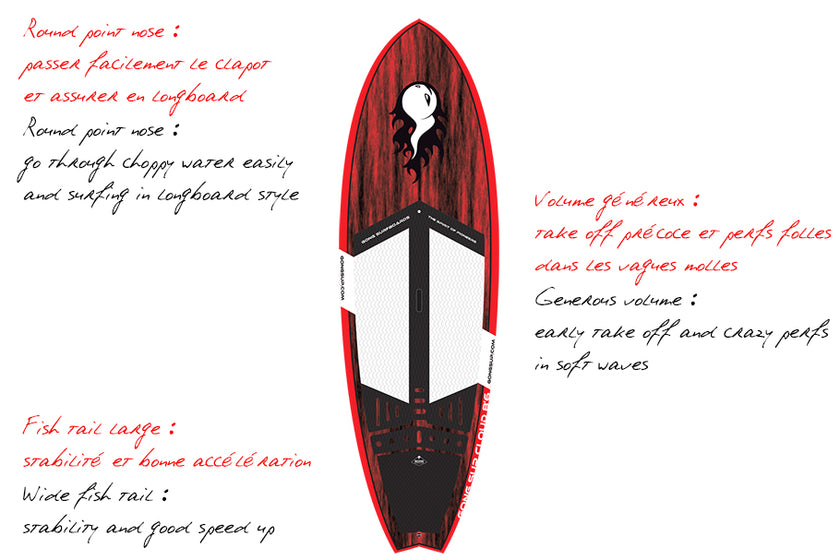 Round point nose :
passer facilement le clapot
et assurer en longboard
Round point nose :
go through choppy water easily
and surfing in longboard style
Volume généreux :
take off précoce et perfs folles
dans les vagues molles
Generous volume :
early take off and crazy perfs
in soft waves
Fish tail large :
stabilité et bonne accélération
Wide fish tail :
stability and good speed up
GONG SURFBOARDS
THE SPIRIT OF PIONEERS
GONGSUP.COM
GONGSUP.COM
GONG SUP CLOUD